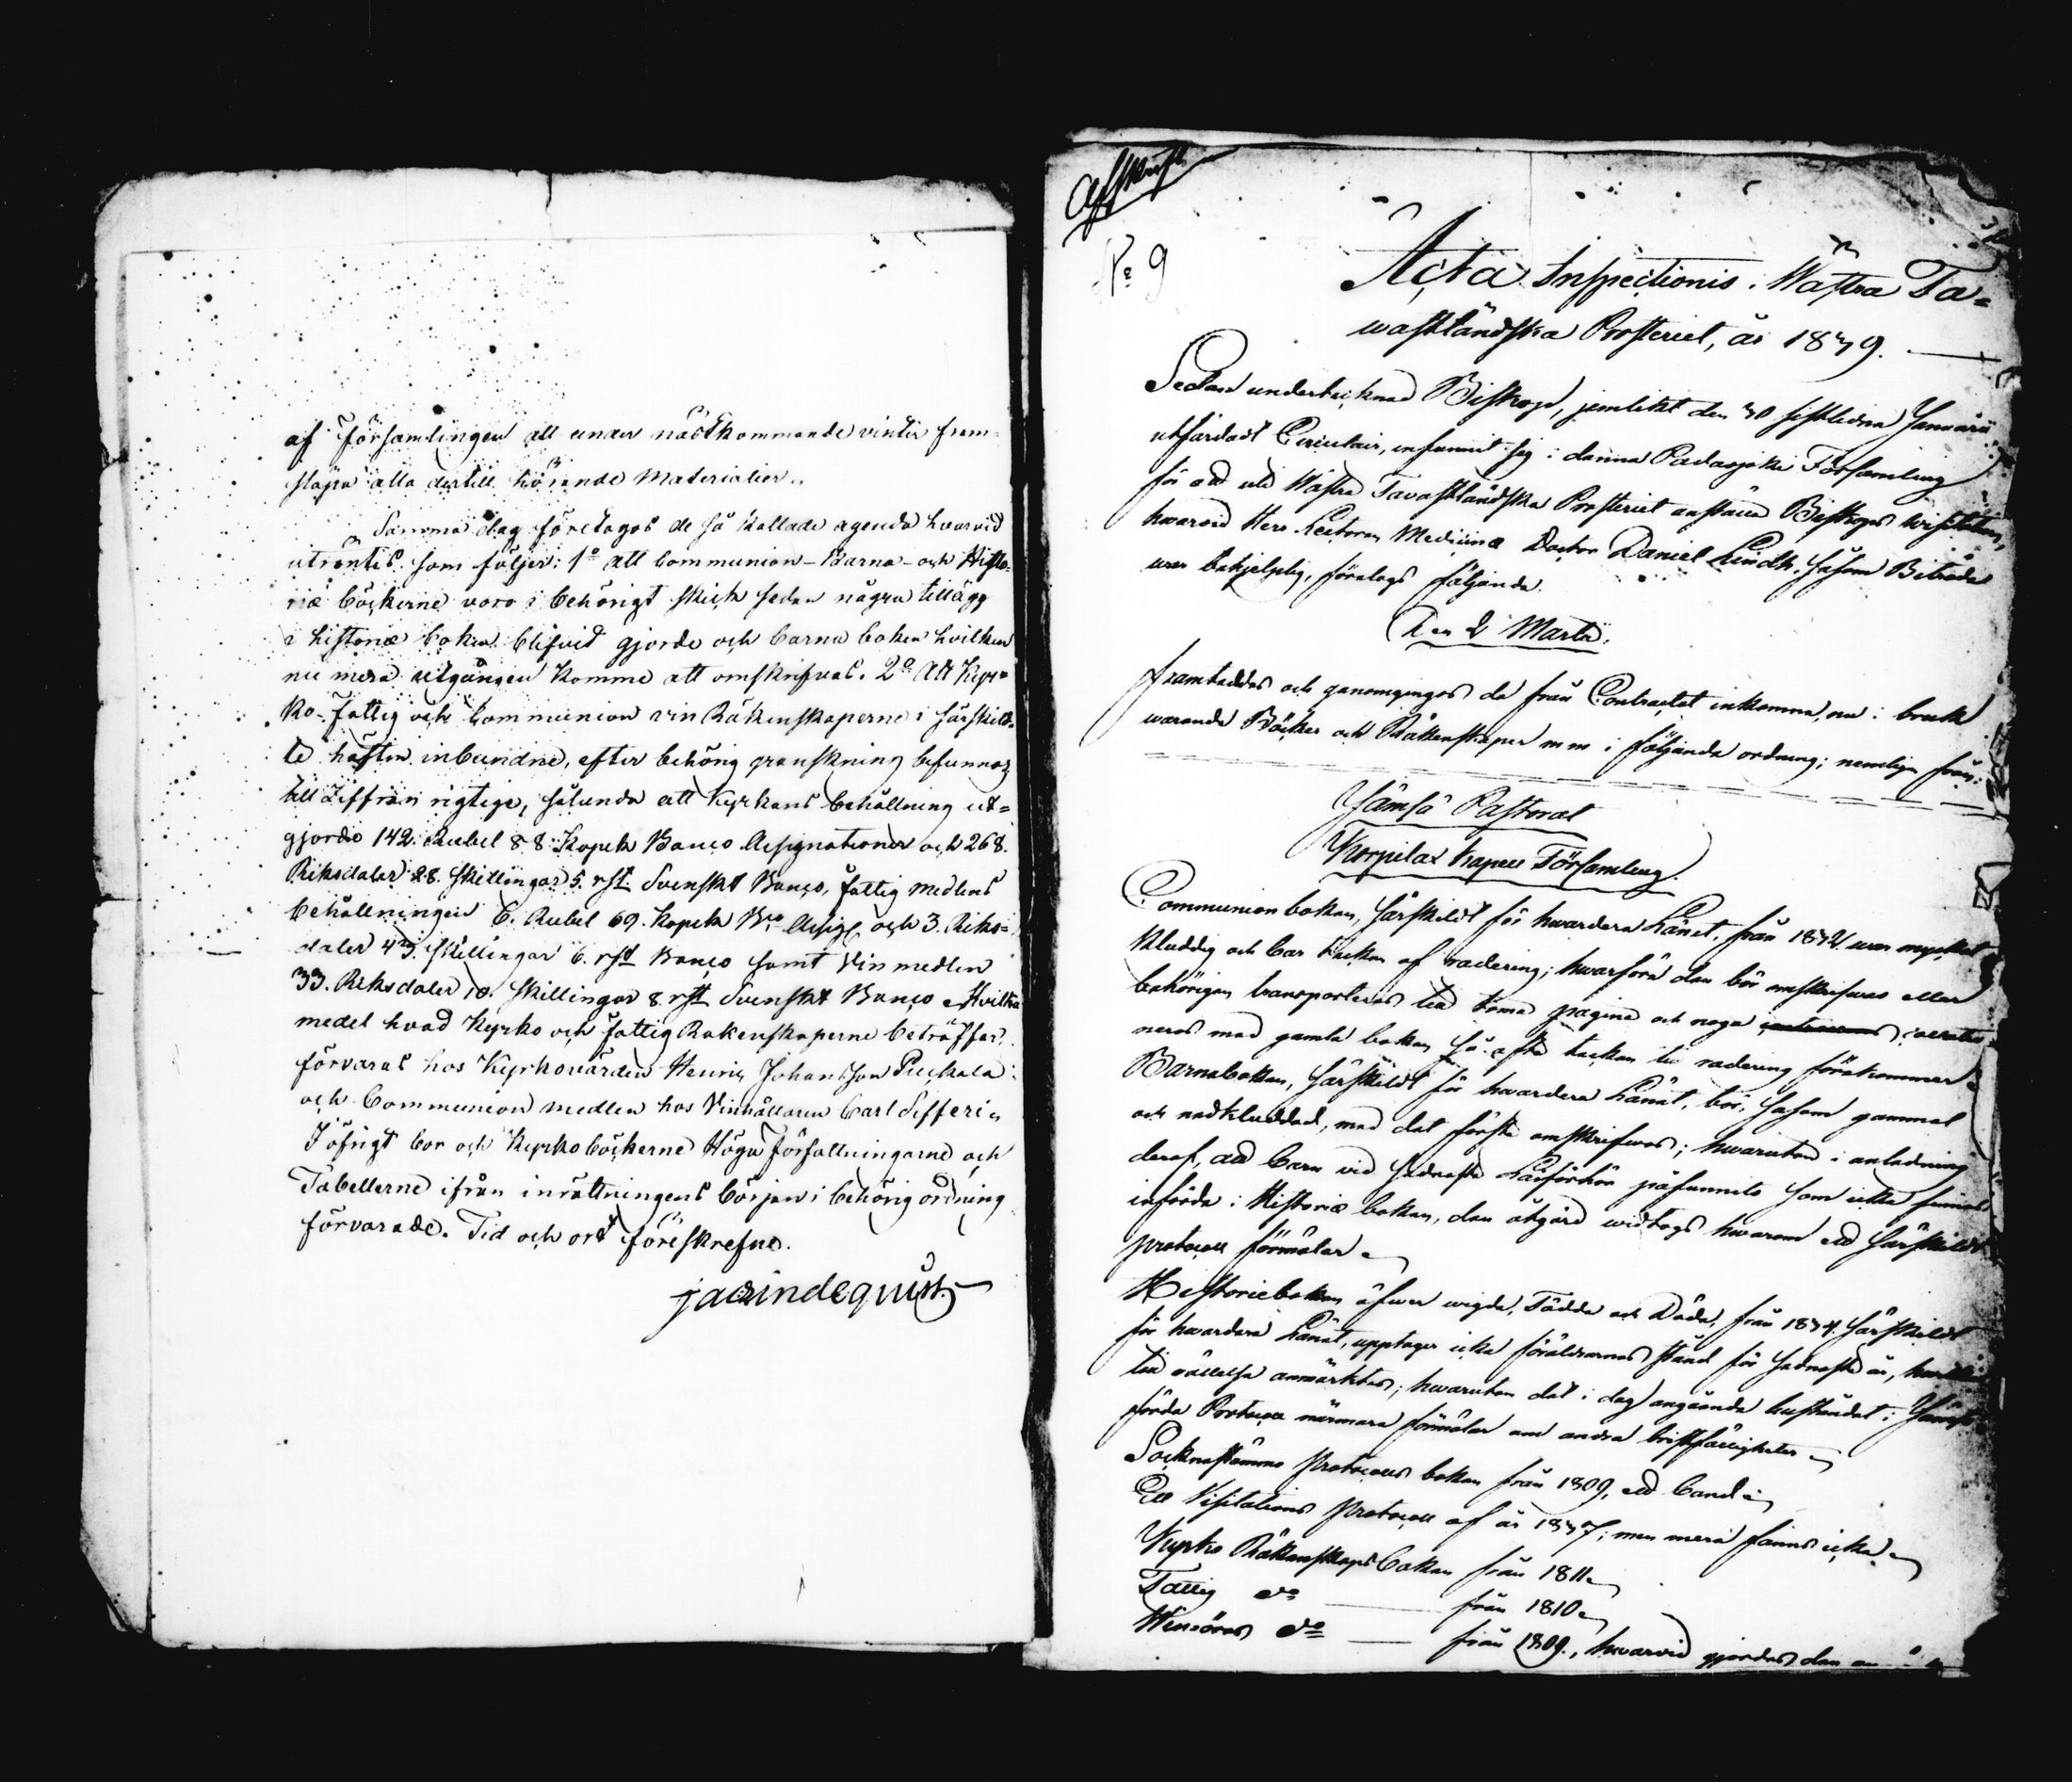 af Församlingen att under nästkommande vinter fram-
släpa alla dertill hörande Materialier.
Samma dag företogos de så kallade agenda hvarvid
utröntes som följer: 1o att Communion- Barna- och Histo-
riæ böckerne voro i behörigt skick sedan några tillägg
i historiæ boken blifvit gjorde och barna boken hvilken
nu mera utgången komme att omskrifvas. 2o Att Kyr-
ko- Fattig och Communion vin Räkenskaperne i särskild-
te häften inbundne, efter behörig granskning befunnos
till Ziffran rigtige, sålunda att Kyrkans behållning ut-
gjorde 142. Rubel 88 Kopek Banco Assignationer och 268.
Riksdaler 28. Skillingar 5. rst. Svenskt Banco, fattig medlens
behållningen 6. Rubel 69. Kopek Bco Assig. och 3. Riks-
daler 43. Skillingar 6. rst Banco samt Vin medlen
33. Riksdaler 10. Skillingar 8 rst Svenskt Banco Hvilka
medel hvad Kyrko och fattig Rakenskaperne beträffar,
förvaras hos Kyrkovärden Henric Johansson
och Communion medlen hos Vinhållaren Carl Sefferi.
I öfrigt bor och Kyrko böckerne Höga författningarne och
Tabellerne ifrån inrättningens början i behörig ordning
förvarade. Tid och ort föreskrefne.
Afskrift
No 9
Acta Inspectionis i Wästra Ta-
wastländska Prosteriet, år 1839.
Sedan undertecknad Biskop, jemlikt den 30 sistledne Januarii
utfärdadt Circulair, infunnit sig i denna Padasjoki Församling
för att uti Wästra Tavastländska Prosteriet anställa Biskops visitation,
hwarvid Herr Lectoren Medicinæ Doctor Daniel Lindh, såsom Biträde
war behjelplig, företogs följande.
Den 2 Martii.
framteddes och genomgingos de från Contractet inkomna, nu i bruk
warande Böcker och Räkenskaper m m i följande ordning; nemligen från:
Jämsä Pastorat
Korpilax Kapell Församling.
Communionboken, särskildt för hwardera Länet, från 1832 war mycket
kluddig och bar tecken af radering; hwarföre den bör omskrifwas eller
behörigen transporteras till toma pagina och noga
neras med gamla boken så ofta tecken till radering förekommer
Barnaboken, särskildt för hwardera Länet, bör, såsom gammal
och nedkluddad, med det första omskrifwas; hwarutom i anledning
deraf, att barn vid sednaste Läsförhör påfunnits som icke finnas
införda i Historiæ boken, den åtgärd widtogs hwarom ett särskildt
protocoll förmäler
Historieboken öfwer wigde, Födde och Döde, från 1834 särskildt
för hwardera Länet, upptager icke föräldrarnes stånd för sednaste år,
till rättelse anmärktes; hwarutom det i dag angående i Jämsä
förda Protocoll närmare förmäler om andra bristfälligheter
Socknestämmo Protocolls boken från 1809, ett band
Ett Visitations Protocoll af år 1837; men mera fanns icke
Kyrko Räkenskaps boken från 1811
Fattig do från 1810
do från 1809, hwarvid gjordes den